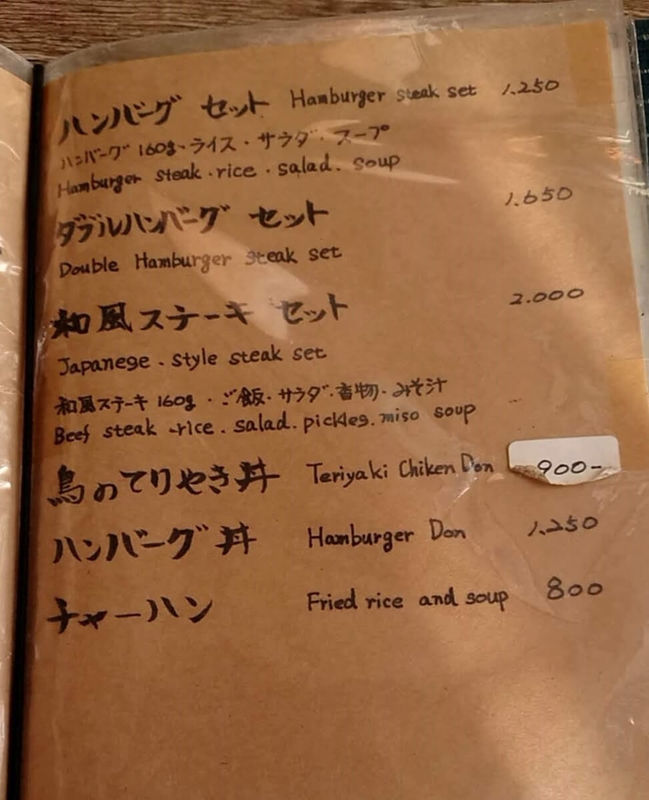 ハンバーグ セット Hamburger steak set 1.250
ハンバーグ 160g、ライス・サラダ・スープ
Hamburger steak・rice・salad. soup
ダブルハンバーグ セット 1.650
Double Hamburger steak set
和風ステーキ セット 2.000
Japanese. style steak set
和風ステーキ 160g・ご飯・サラダ・香物・みそ汁
Beef steak -rice. salad. pickles. miso soup
鳥のてりやき丼 Teriyaki Chiken Don 900-
ハンバーグ丼 Hamburger Don 1.250
チャーハン Fried rice and soup 800